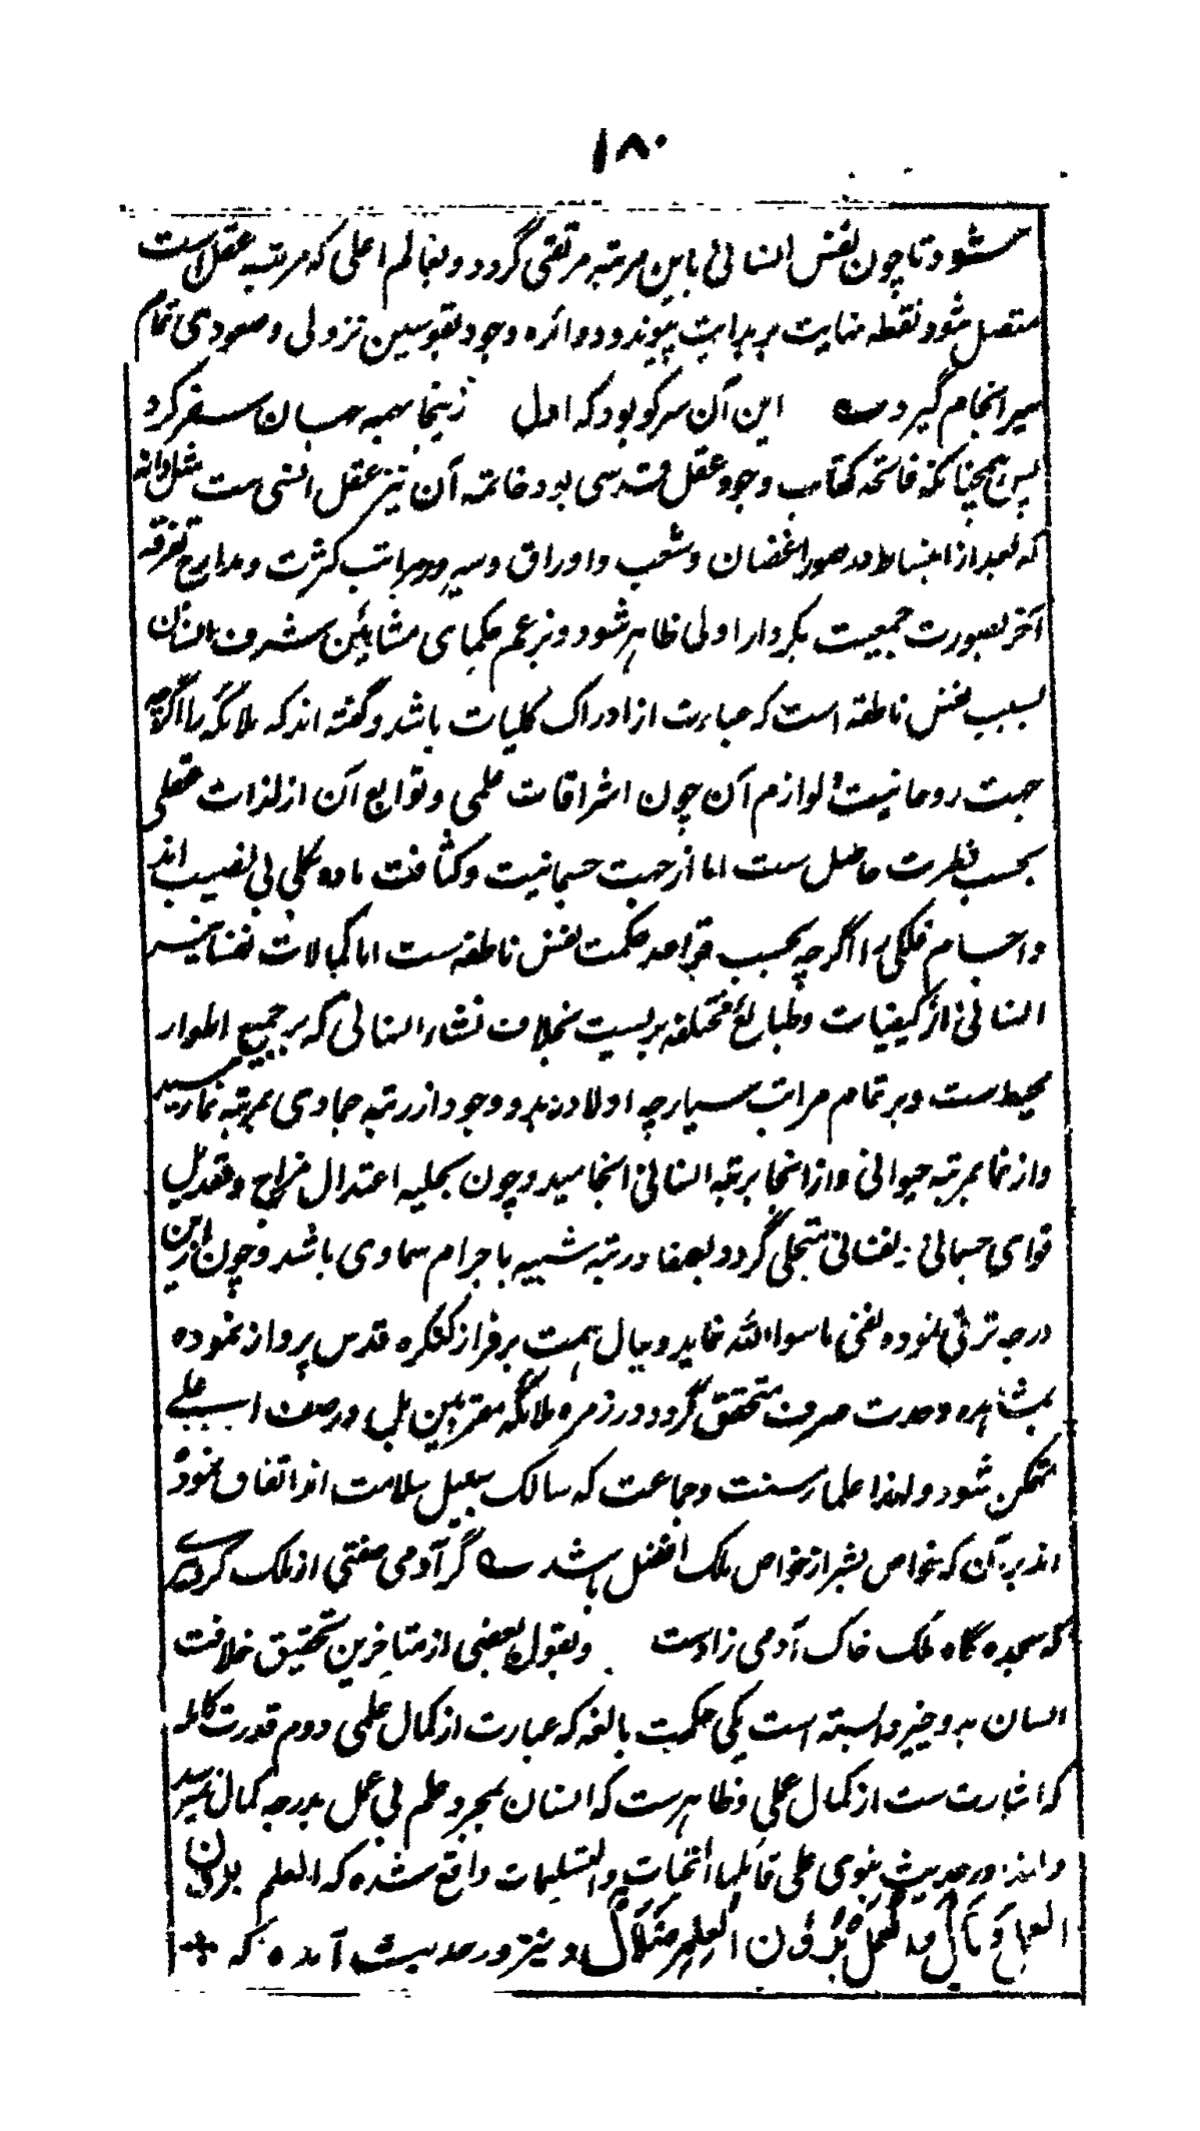 ۱۸۰
شود تا چون نفس انسانی باین مرتبه مرتقی گردد و بعالم اعلی که مرتبه عقل است
متصل شود نقطه نهایت بر بدایت پیوندد و دائره وجود بقوسین نزولی و صعودی تمام
سرانجام گیرد ؎ این آن سر کو بود که اول زینجا بهمه جهان سفر کرد
پس همچنانکه فاتحه کتاب وجود عقل قدسی بود خاتمه آن نیز عقل انسی ست مثل دانه
که بعد از انبساط در صور اغصان و شعب و اوراق و سیر در مراتب کثرت و مدارج تفرقه
آخر بصورت جمعیت بکردار اولی ظاهر شود و بزعم حکمای مشایئین شرف انسان
بسبب نفس ناطقه است که عبارت از ادراک کلیات باشد و گفته اند که ملائکه را اگرچه
جهت روحانیت و لوازم آن چون اشراقات علمی و توابع آن از لذات عقلی
بحسب فطرت حاصل ست اما از جهت جسمانیت و کثافت ماده کلی بی نصیب اند
و اجسام فلکی را اگرچه بحسب قواعد حکمت نفس ناطقه ست اما کمالات نفسانیه
انسانی از کیفیات و طبائع مختلفه بریست بخلاف نشاء انسانی که بر جمیع اطوار
محیط ست و بر تمام مراتب سیار چه اولا در بدو وجود از رتبه جمادی بمرتبه نما رسید
و از نما بمرتبه حیوانی و از انجا برتبه انسانی انجامید و چون بحلیه اعتدال مزاج و تعدیل
قوای جسمانی نفسانی متجلی گردد بصفا در رتبه شبیه با جرام سماوی باشد و چون ازین
درجه ترقی نموده نفی ماسواالله نماید و ببال همت بر فراز کنگره قدس پرواز نموده
بمشاهده وحدت صرف متحقق گردد در زمره ملائکه مقربین بل در صف اعلی
متمکن شود و لهذا علماء سنت و جماعت که سالک سبیل سلامت اند اتفاق نموده
اند بر آن که خواص بشر از خواص ملک افضل باشد ؎ گر آدمی صفتی از ملک گرو
که سجده گاه ملک خاک آدمی زاد ست و بقول بعضی از متاخرین تحقیق خلافت
انسان بدو چیز وابسته است یکی حکمت بالغه که عبارت از کمال علمی دوم قدرت کامله
که اشارت ست از کمال عملی و ظاهرست که انسان بمجرد علم بی عمل بدرجه کمال نمیرسد
و لهذا در حدیث نبوی علی قائلها التحیات والتسلیمات واقع شده که العلم بدون
العمل وبال والعمل بدون العلم ضلال و نیز در حدیث آمده که